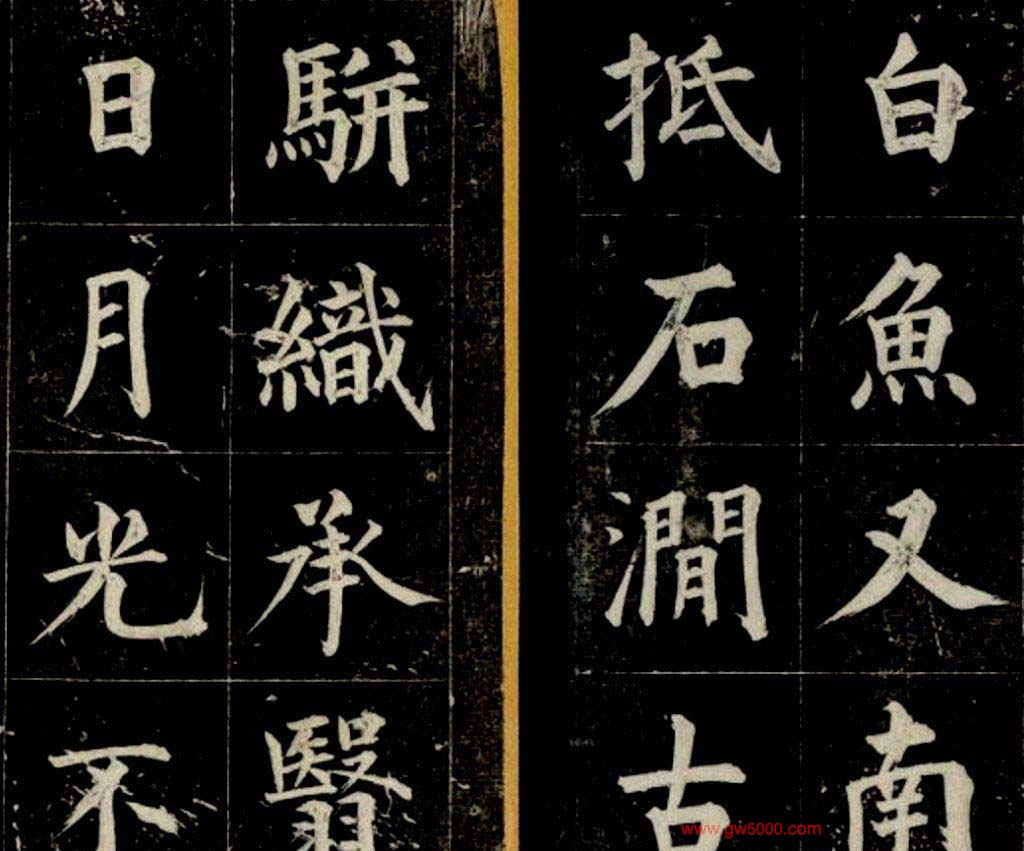 白魚又南
抵石澗古
駢織承翳
日月光不
www.gw5000.com